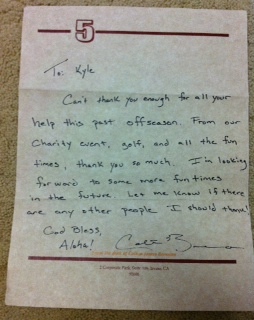 5
To: Kyle
Can't thank you enough for all your
help this past offseason. From our
Charity event, golf, and all the fun
times, thank you so much. I'm looking
forward to some more fun times
in the future. Let me know if there
are any other people I should thank!
God Bless,
Aloha!
2 Corporate Park,